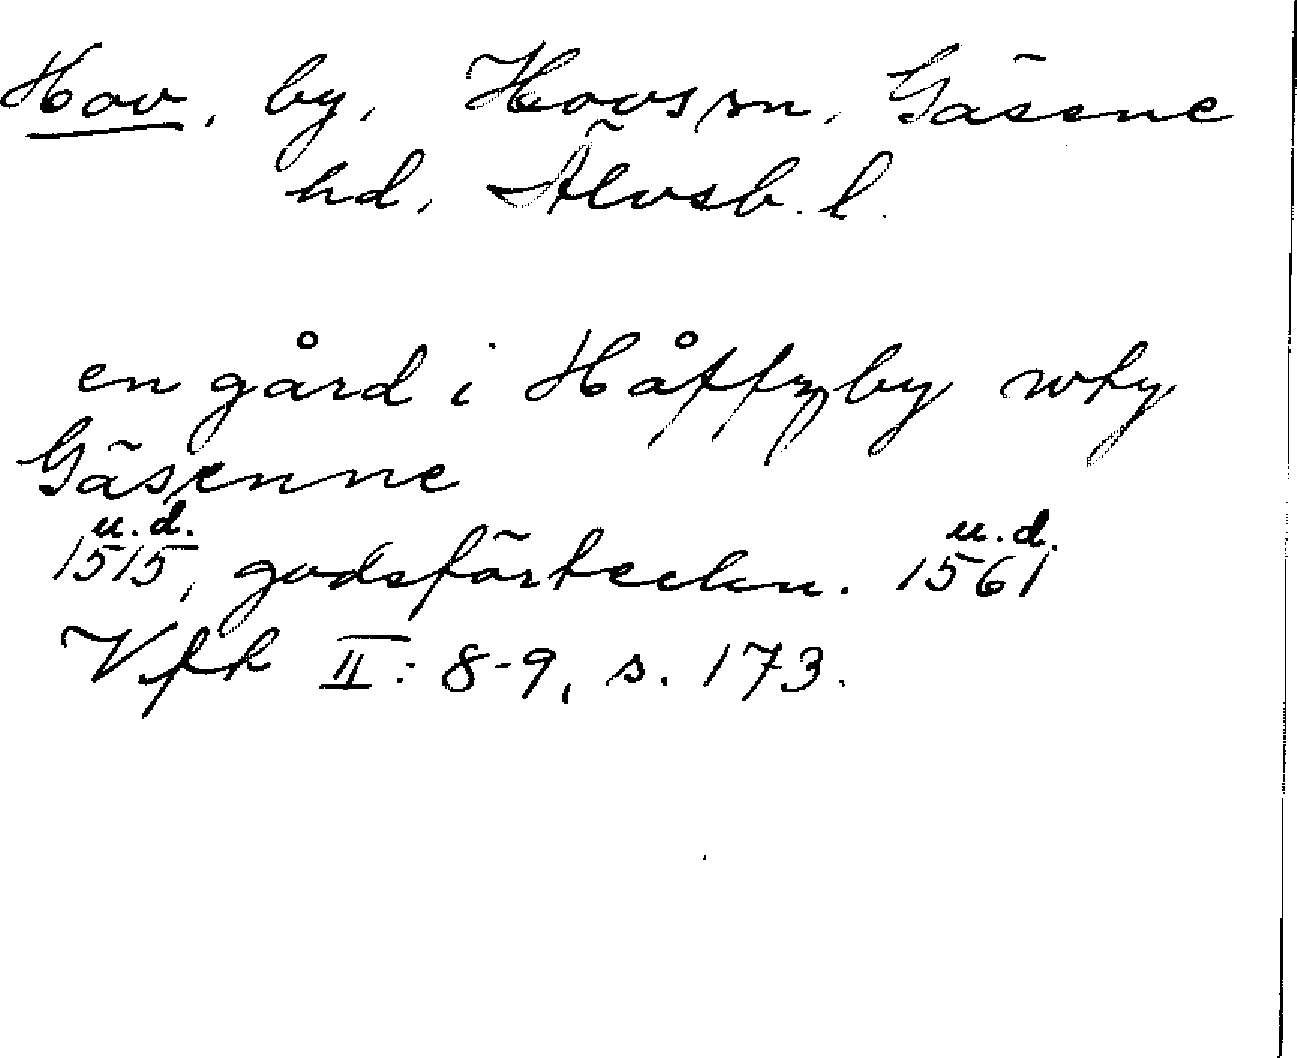 Hov, by, Hovs sn, Gäsene
hd, Älvsb. l.
en gård i Håffzby wty
Gäsenne
u.d. u.d.
1515, godsförteckn. 1561
Vfk II: 8-9, s. 173.